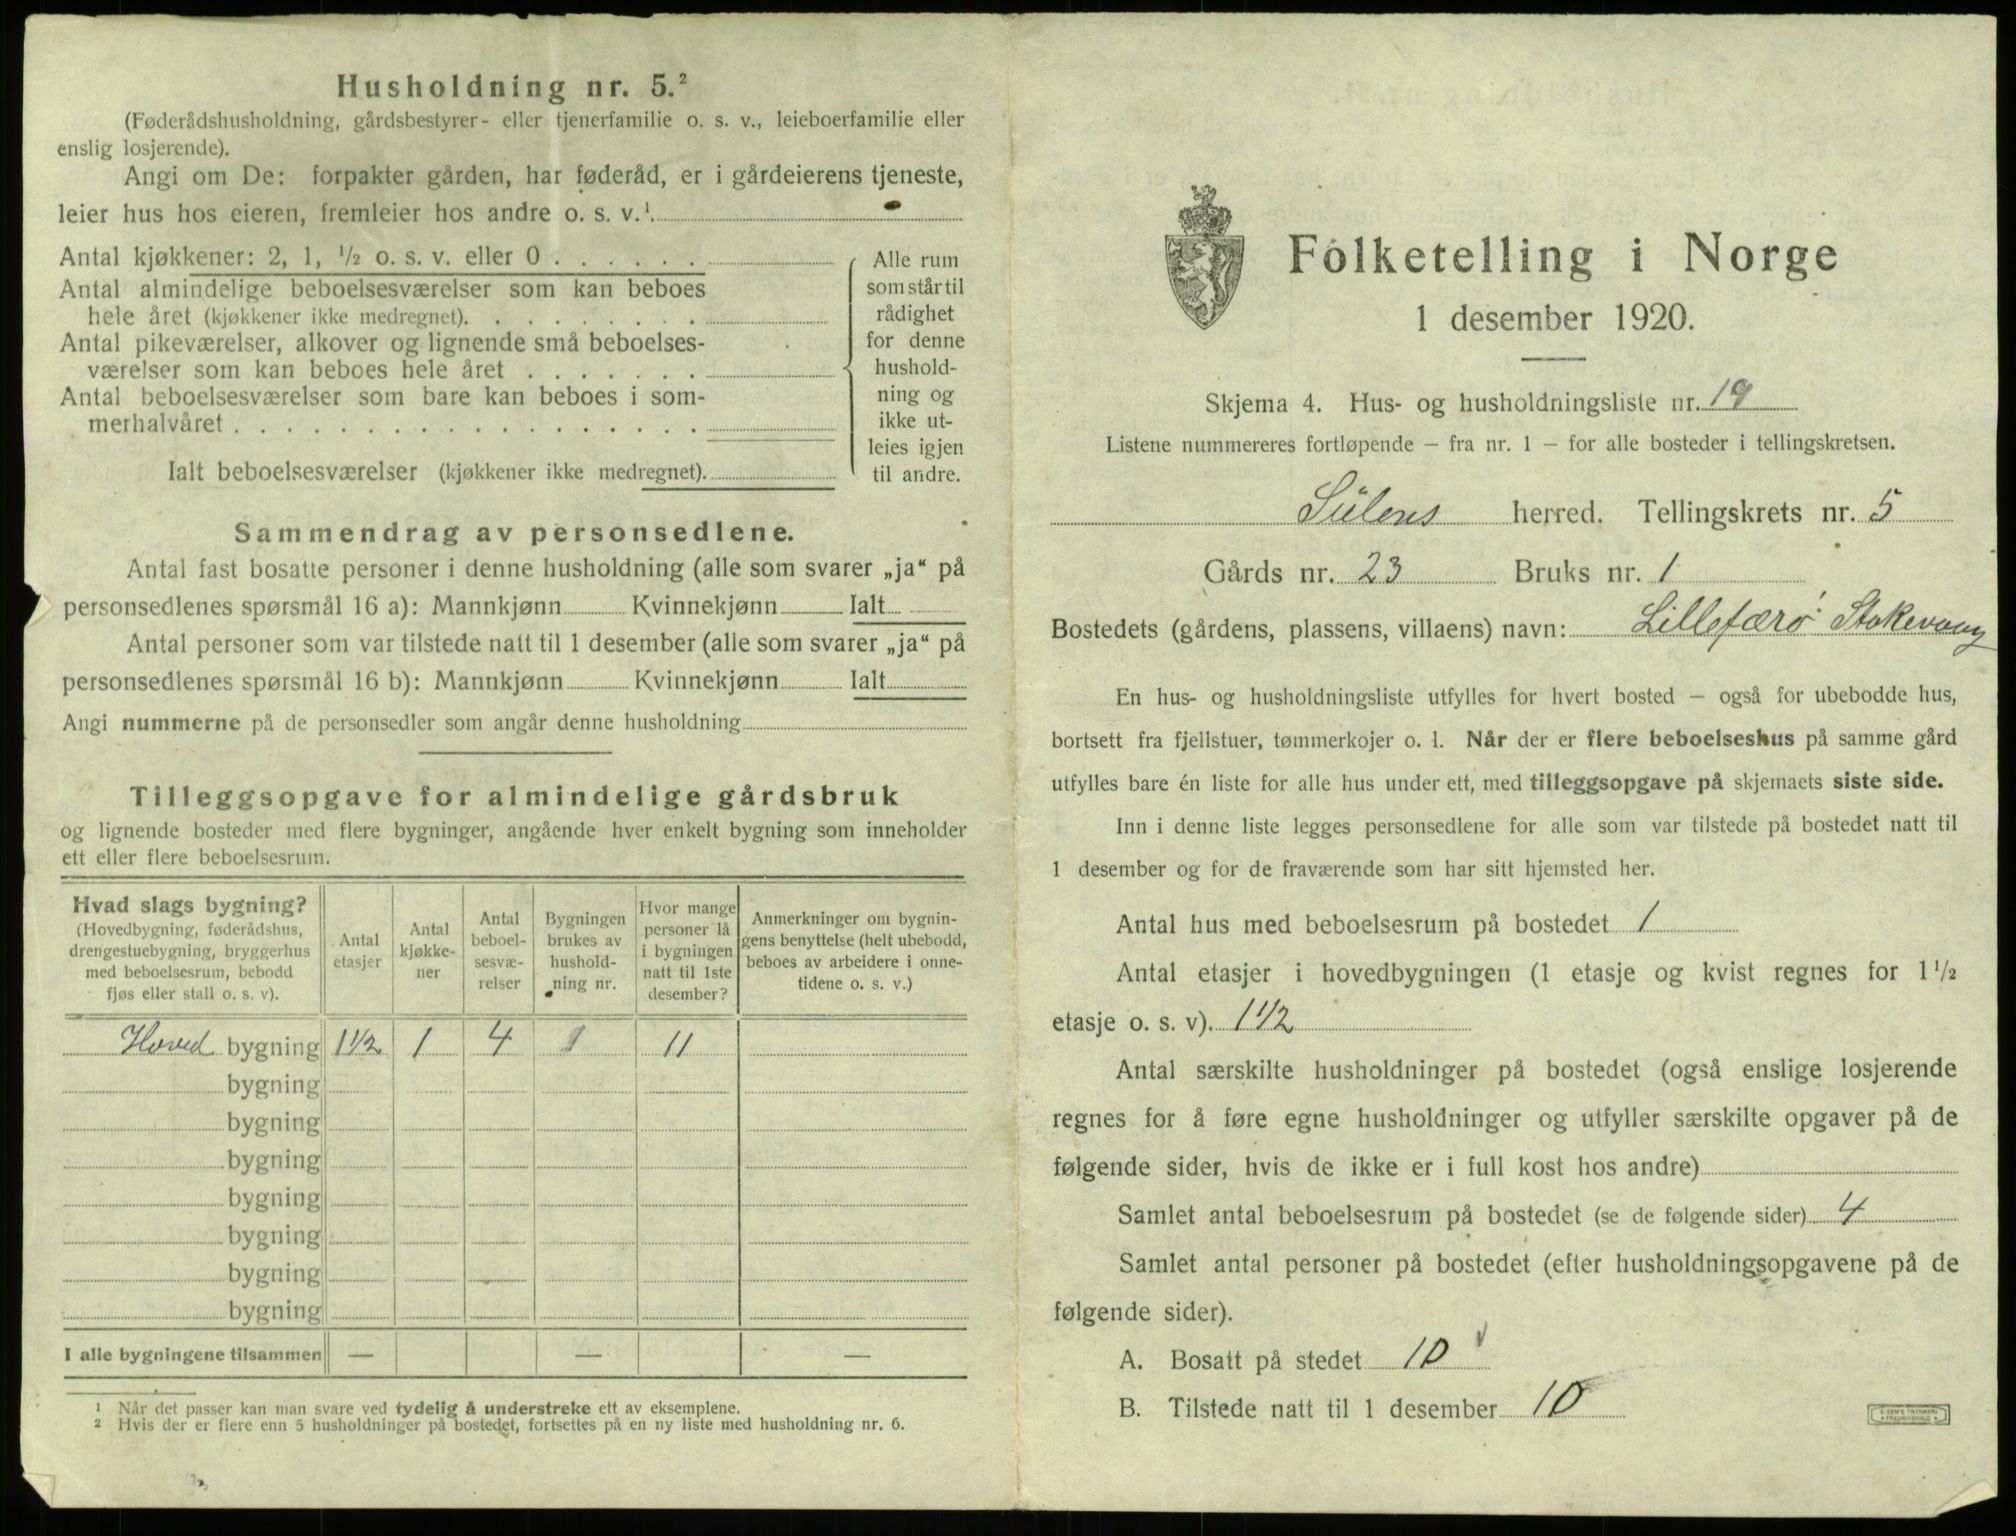 Husholdning nr. 5.²
(Føderådshusholdning, gårdsbestyrer- eller tjenerfamilie o. s. v., leieboerfamilie eller
enslig losjerende).
Angi om De: forpakter gården, har føderåd, er i gårdeierens tjeneste,
leier hus hos eieren, fremleier hos andre o. s. v.¹
Antal kjøkkener: 2, 1, ½ o. s. v. eller 0 . . . . . .
Antal almindelige beboelsesværelser som kan beboes
hele året (kjøkkener ikke medregnet). . . . . . . . .
Antal pikeværelser, alkover og lignende små beboelses-
værelser som kan beboes hele året . . . . . . .
Antal beboelsesværelser som bare kan beboes i som-
merhalvåret . . . . . . . . . . . . . . . . . .
Ialt beboelsesværelser (kjøkkener ikke medregnet).
Alle rum
som står til
rådighet
for denne
hushold-
ning og
ikke ut-
leies igjen
til andre.
Sammendrag av personsedlene.
Antal fast bosatte personer i denne husholdning (alle som svarer „ja“ på
personsedlenes spørsmål 16 a): Mannkjønn Kvinnekjønn Ialt
Antal personer som var tilstede natt til 1 desember (alle som svarer „ja“ på
personsedlenes spørsmål 16 b): Mannkjønn Kvinnekjønn Ialt
Angi nummerne på de personsedler som angår denne husholdning
Tilleggsopgave for almindelige gårdsbruk
og lignende bosteder med flere bygninger, angående hver enkelt bygning som inneholder
ett eller flere beboelsesrum.
Hvad slags bygning?
(Hovedbygning, føderådshus,
drengestuebygning, bryggerhus
med beboelsesrum, bebodd
fjøs eller stall o. s. v).
Antal
etasjer
Antal
kjøkke-
ner
Antal
beboel-
sesvæ-
relser
Bygningen
brukes av
hushold-
ning nr.
Hvor mange
personer lå
i bygningen
natt til 1ste
desember?
Anmerkninger om bygnin-
gens benyttelse (helt ubebodd,
beboes av arbeidere i onne-
tidene o. s. v.)
Hoved bygning 1½ 1 4 1 11
bygning
bygning
bygning
bygning
bygning
bygning
bygning
I alle bygningene tilsammen — — —
¹ Når det passer kan man svare ved tydelig å understreke ett av eksemplene.
² Hvis der er flere enn 5 husholdninger på bostedet, fortsettes på en ny liste med husholdning nr. 6.
Folketelling i Norge
1 desember 1920.
Skjema 4. Hus- og husholdningsliste nr. 19
Listene nummereres fortløpende — fra nr. 1 — for alle bosteder i tellingskretsen.
Sülens herred. Tellingskrets nr. 5
Gårds nr. 23 Bruks nr. 1
Bostedets (gårdens, plassens, villaens) navn: Lillefærø Stokevaag
En hus- og husholdningsliste utfylles for hvert bosted — også for ubebodde hus,
bortsett fra fjellstuer, tømmerkojer o. l. Når der er flere beboelseshus på samme gård
utfylles bare én liste for alle hus under ett, med tilleggsopgave på skjemaets siste side.
Inn i denne liste legges personsedlene for alle som var tilstede på bostedet natt til
1 desember og for de fraværende som har sitt hjemsted her.
Antal hus med beboelsesrum på bostedet 1
Antal etasjer i hovedbygningen (1 etasje og kvist regnes for 1½
etasje o. s. v). 1½
Antal særskilte husholdninger på bostedet (også enslige losjerende
regnes for å føre egne husholdninger og utfyller særskilte opgaver på de
følgende sider, hvis de ikke er i full kost hos andre)
Samlet antal beboelsesrum på bostedet (se de følgende sider) 4
Samlet antal personer på bostedet (efter husholdningsopgavene på de
følgende sider).
A. Bosatt på stedet 10 √
B. Tilstede natt til 1 desember 10